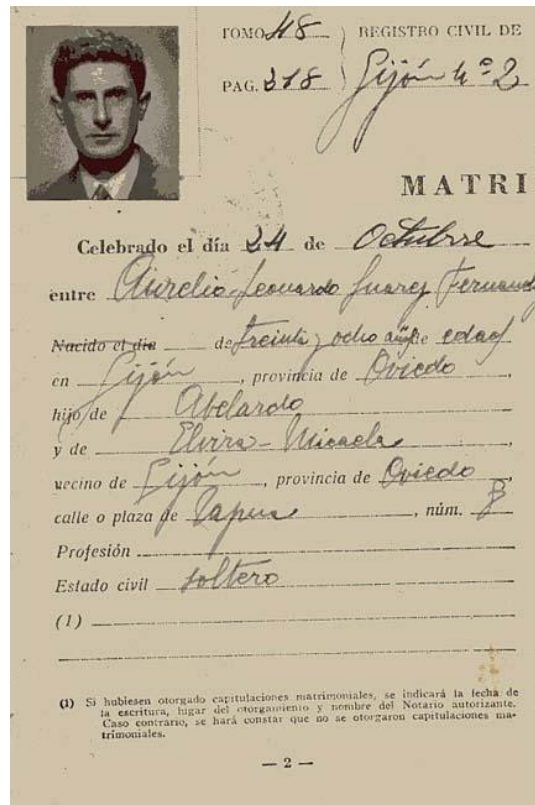 TOMO 48 REGISTRO CIVIL DE
PAG. 318 Gijón nº 2
MATRI
Celebrado el día 24 de Octubre
entre Aurelio-Leonardo Suarez Fernandez
Nacido el día de treinta y ocho años de edad
en Gijón, provincia de Oviedo,
hijo de Abelardo
y de Elvira-Micaela,
vecino de Gijón, provincia de Oviedo,
calle o plaza de, núm. 8
Profesión
Estado civil soltero
(1)
(1) Si hubiesen otorgado capitulaciones matrimoniales, se indicará la fecha de
la escritura, lugar del otorgamiento y nombre del Notario autorizante.
Caso contrario, se hará constar que no se otorgaron capitulaciones ma-
trimoniales.
— 2 —